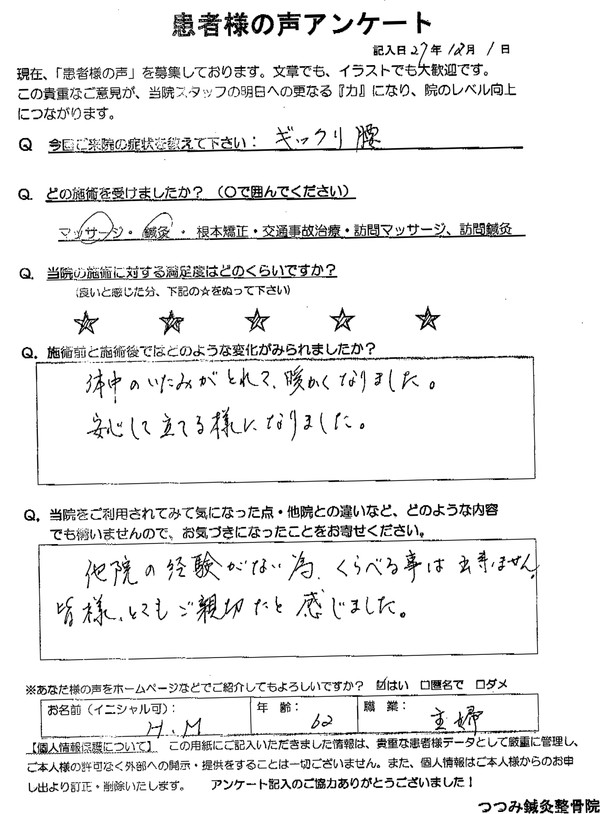 患者様の声アンケート
記入日 27年 12月 1日
現在、「患者様の声」を募集しております。文章でも、イラストでも大歓迎です。
この貴重なご意見が、当院スタッフの明日への更なる『力』になり、院のレベル向上
につながります。
Q 今回ご来院の症状を教えて下さい： ギックリ腰
Q. どの施術を受けましたか？（○で囲んでください）
マッサージ・ 鍼灸 ・根本矯正・交通事故治療・訪問マッサージ、訪問鍼灸
Q. 当院の施術に対する満足度はどのくらいですか？
（良いと感じた分、下記の☆をぬって下さい）
☆ ☆ ☆ ☆ ☆
Q. 施術前と施術後ではどのような変化がみられましたか？
体中のいたみがとれて、暖かくなりました。
安心して立てる様になりました。
Q. 当院をご利用されてみて気になった点・他院との違いなど、どのような内容
でも構いませんので、お気づきになったことをお寄せください。
他院の経験がない為、くらべる事は出来ません。
皆様、とてもご親切だと感じました。
※あなた様の声をホームページなどでご紹介してもよろしいですか？ ☑はい □匿名で □ダメ
お名前（イニシャル可）： H.M 年 齢： 62 職 業： 主婦
【個人情報保護について】 この用紙にご記入いただきました情報は、貴重な患者様データとして厳重に管理し、
ご本人様の許可なく外部への開示・提供をすることは一切ございません。また、個人情報はご本人様からのお申
し出より訂正・削除いたします。 アンケート記入のご協力ありがとうございました！
つつみ鍼灸整骨院